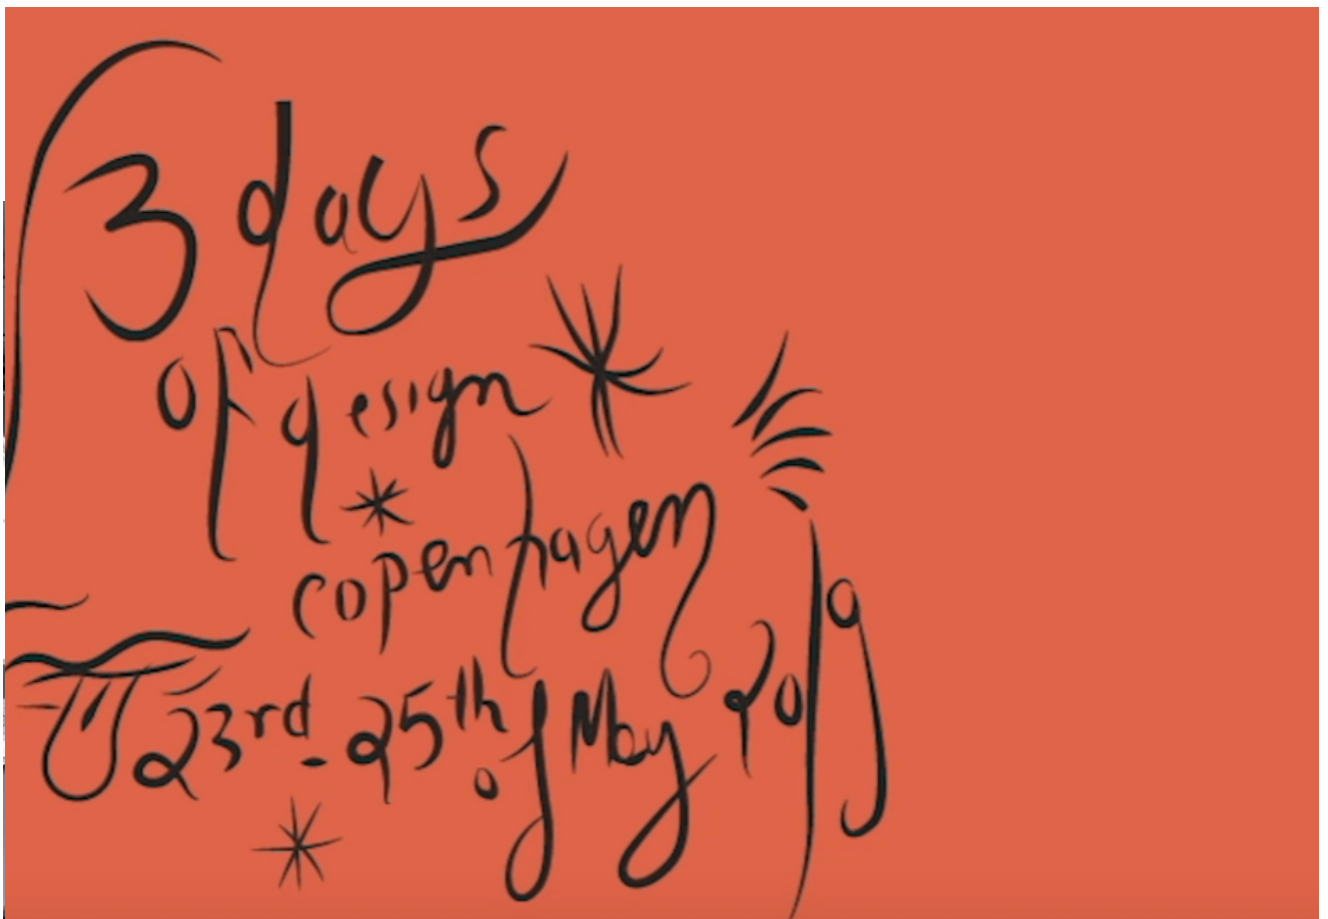 3 days
of design
copenhagen
23rd - 25th of May 2019